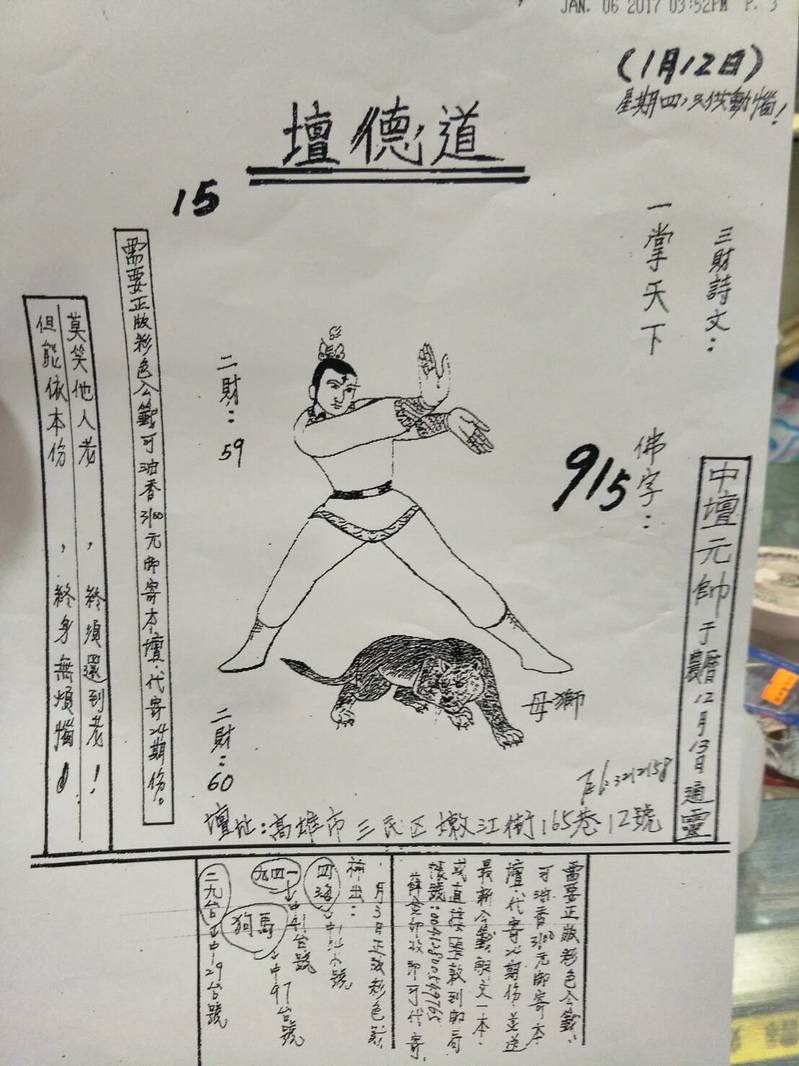 JAN. 06 2017 03:52PM P. 3
(1月12日)
星期四,只供動惱!
壇德道
15
三財詩文:
一掌天下
佛字:
915
中壇元帥于農曆12月13日通靈
二財:
59
二財:
60
母獅
需要正版彩色公籤可油香3100元郵寄本壇.代寄24期份。
莫笑他人老,終須還到老!
但能依本份,終身無煩惱!
Tel:3212158
壇址:高雄市三民區嫩江街165巷12號
需要正版彩色公籤:
可油香3100元郵寄本
壇.代寄24期份並送
最新公籤解文一本.
或直接匯款到郵局
帳號:00412800549765
即可代寄.
月3日正版彩色籤
神出:
四海↓中
一四九↓中41台號
狗馬↓中97台號
二九台↓中29台號